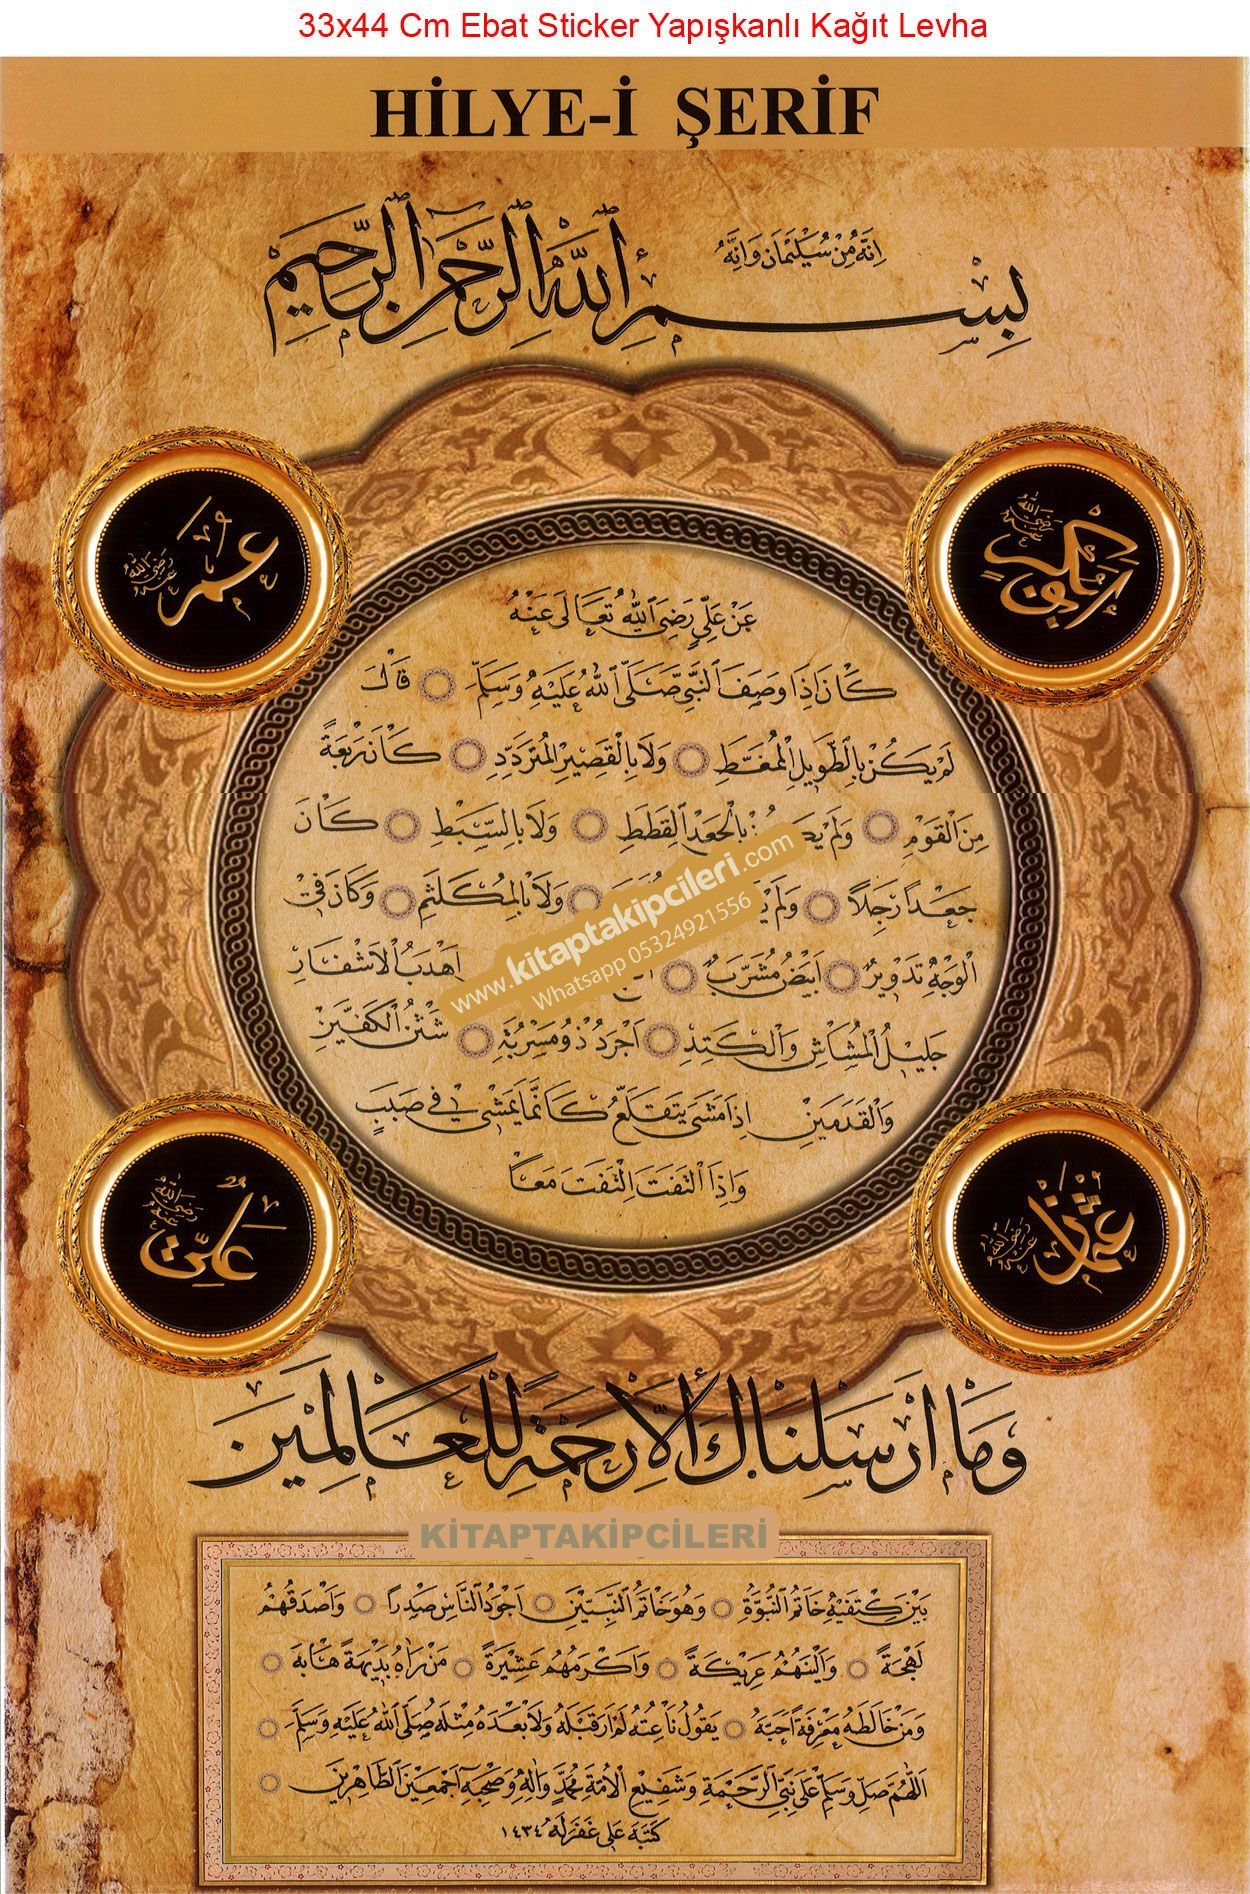 33x44 Cm Ebat Sticker Yapışkanlı Kağıt Levha
HİLYE-İ ŞERİF
اِنَّهُ مِنْ سُلَيْمَانَ وَاِنَّهُ
بِسْمِ اللهِ الرَّحْمٰنِ الرَّحِيمِ
ابوبكر رضى الله عنه
عُمَرْ رضى الله عنه
عَنْ عَلِيٍّ رَضِىَ اللهُ تَعَالَى عَنْهُ
كَانَ اِذَا وَصَفَ النَّبِىَّ صَلَّى اللهُ عَلَيْهِ وَسَلَّمَ قَالَ
لَمْ يَكُنْ بِالطَّوِيلِ الْمُمَغَّطِ وَلَا بِالْقَصِيرِ الْمُتَرَدِّدِ كَانَ رَبْعَةً
مِنَ الْقَوْمِ وَلَمْ بِالْجَعْدِ الْقَطَطِ وَلَا بِالسَّبِطِ كَانَ
جَعْداً رَجِلاً وَلَمْ وَلَا بِالْمُكَلْثَمِ وَكَانَ فِى
الْوَجْهِ تَدْوِيرٌ اَبْيَضُ مُشَرَّبٌ اَهْدَبُ الْاَشْفَارِ
جَلِيلُ الْمُشَاشِ وَالْكَتِدِ اَجْرَدُ ذُو مَسْرُبَةٍ شَثْنُ الْكَفَّيْنِ
وَالْقَدَمَيْنِ اِذَا مَشَى يَتَقَلَّعُ كَاَنَّمَا يَمْشِى فِى صَبَبٍ
وَاِذَا الْتَفَتَ الْتَفَتَ مَعاً
www.kitaptakipcileri.com
Whatsapp 05324921556
عُثْمَانْ رضى الله عنه
عَلِى رضى الله عنه
وَمَا اَرْسَلْنَاكَ اِلَّا رَحْمَةً لِلْعَالَمِينَ
KİTAPTAKİPCİLERİ
بَيْنَ كَتِفَيْهِ خَاتَمُ النُّبُوَّةِ وَهُوَ خَاتَمُ النَّبِيِّينَ اَجْوَدُ النَّاسِ صَدْراً وَاَصْدَقُهُمْ
لَهْجَةً وَاَلْيَنُهُمْ عَرِيكَةً وَاَكْرَمُهُمْ عَشِيرَةً مَنْ رَاٰهُ بَدِيهَةً هَابَهُ
وَمَنْ خَالَطَهُ مَعْرِفَةً اَحَبَّهُ يَقُولُ نَاعِتُهُ لَمْ اَرَ قَبْلَهُ وَلَا بَعْدَهُ مِثْلَهُ صَلَّى اللهُ عَلَيْهِ وَسَلَّمَ
اَللّٰهُمَّ صَلِّ وَسَلِّمْ عَلَى نَبِىِّ الرَّحْمَةِ وَشَفِيعِ الْاُمَّةِ مُحَمَّدٍ وَاٰلِهِ وَصَحْبِهِ اَجْمَعِينَ الطَّاهِرِينَ
كَتَبَهُ عَلِى غُفِرَ لَهُ ١٤٣٤